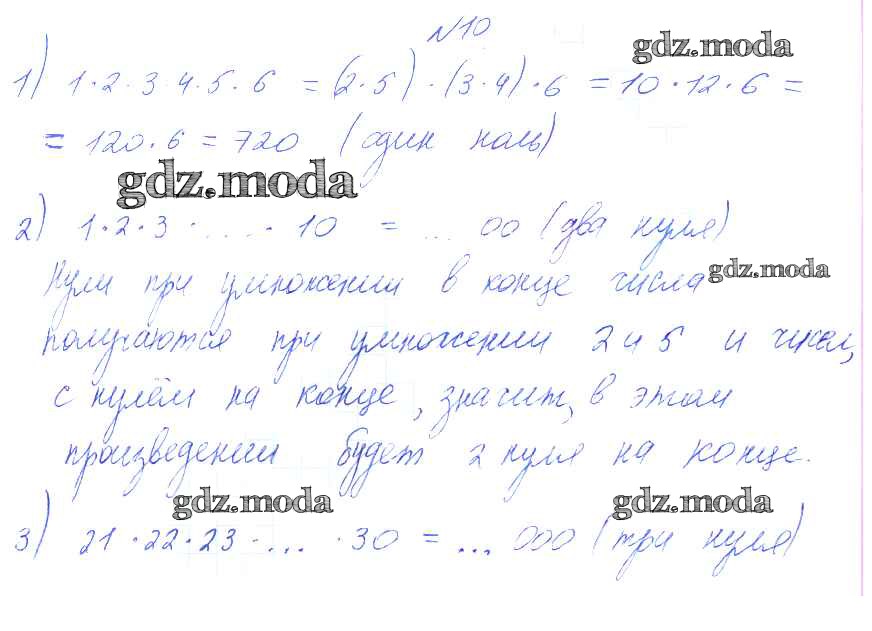 №10
gdz.moda
1) 1·2·3·4·5·6 = (2·5)·(3·4)·6 = 10·12·6 =
= 120·6 = 720 (один ноль)
gdz.moda
2) 1·2·3·....·10 = ... 00 (два нуля)
Нули при умножении в конце числа
gdz.moda
получаются при умножении 2 и 5 и чисел,
с нулём на конце, значит, в этом
произведении будет 2 нуля на конце.
gdz.moda gdz.moda
3) 21·22·23·...·30 = ... 000 (три нуля)